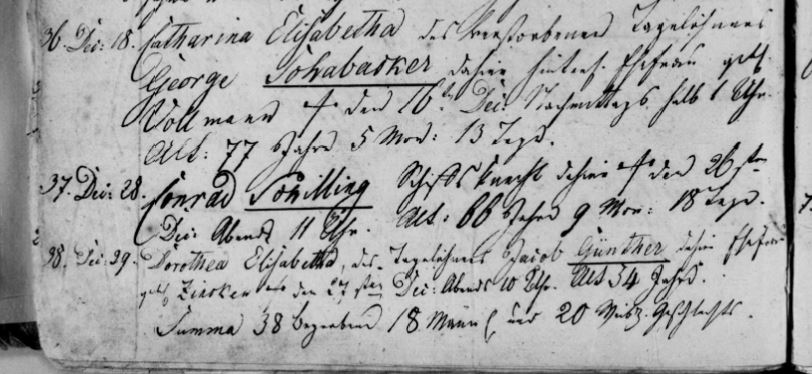 36. Dec: 18. Catharina Elisabetha des verstorbenen Tagelöhners
George Schabacker dahier hinterl. Ehefrau geb.
Vollmann † den 16ten Dec: Nachmittags halb 1 Uhr.
Alt: 77 Jahre 5 Mon: 13 Tage.
37. Dec: 28. Conrad Schilling Schiffsknecht dahier † den 26sten
Dec: Abends 11 Uhr. Alt: 66 Jahre 9 Mon: 18 Tage.
38. Dec: 29. Dorothea Elisabetha, des Tagelöhners Jacob Günther dahier Ehefrau
geb. † den 27sten Dec: Abends 10 Uhr. Alt 34 Jahre.
Summa 38 Begrabene 18 Männl. und 20 Weibl. Geschlechts.